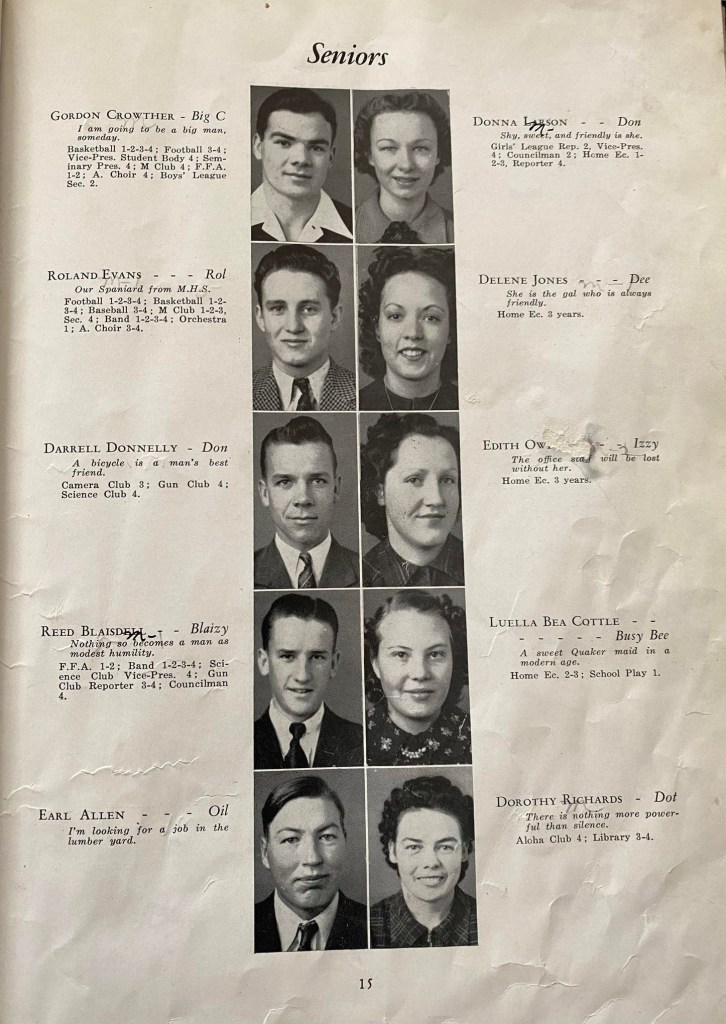 Seniors
GORDON CROWTHER - Big C
I am going to be a big man,
someday.
Basketball 1-2-3-4; Football 3-4;
Vice-Pres. Student Body 4; Sem-
inary Pres. 4; M Club 4; F.F.A.
1-2; A. Choir 4; Boys' League
Sec. 2.
DONNA LARSON - - Don
Shy, sweet, and friendly is she.
Girls' League Rep. 2, Vice-Pres.
4; Councilman 2; Home Ec. 1-
2-3, Reporter 4.
ROLAND EVANS - - - Rol
Our Spaniard from M.H.S.
Football 1-2-3-4; Basketball 1-2-
3-4; Baseball 3-4; M Club 1-2-3,
Sec. 4; Band 1-2-3-4; Orchestra
1; A. Choir 3-4.
DELENE JONES - - - Dee
She is the gal who is always
friendly.
Home Ec. 3 years.
DARRELL DONNELLY - Don
A bicycle is a man's best
friend.
Camera Club 3; Gun Club 4;
Science Club 4.
EDITH - - Izzy
The office staff will be lost
without her.
Home Ec. 3 years.
REED BLAISDELL - - Blaizy
Nothing so becomes a man as
modest humility.
F.F.A. 1-2; Band 1-2-3-4; Sci-
ence Club Vice-Pres. 4; Gun
Club Reporter 3-4; Councilman
4.
LUELLA BEA COTTLE - -
- - - - - Busy Bee
A sweet Quaker maid in a
modern age.
Home Ec. 2-3; School Play 1.
EARL ALLEN - - - Oil
I'm looking for a job in the
lumber yard.
DOROTHY RICHARDS - Dot
There is nothing more power-
ful than silence.
Aloha Club 4; Library 3-4.
15